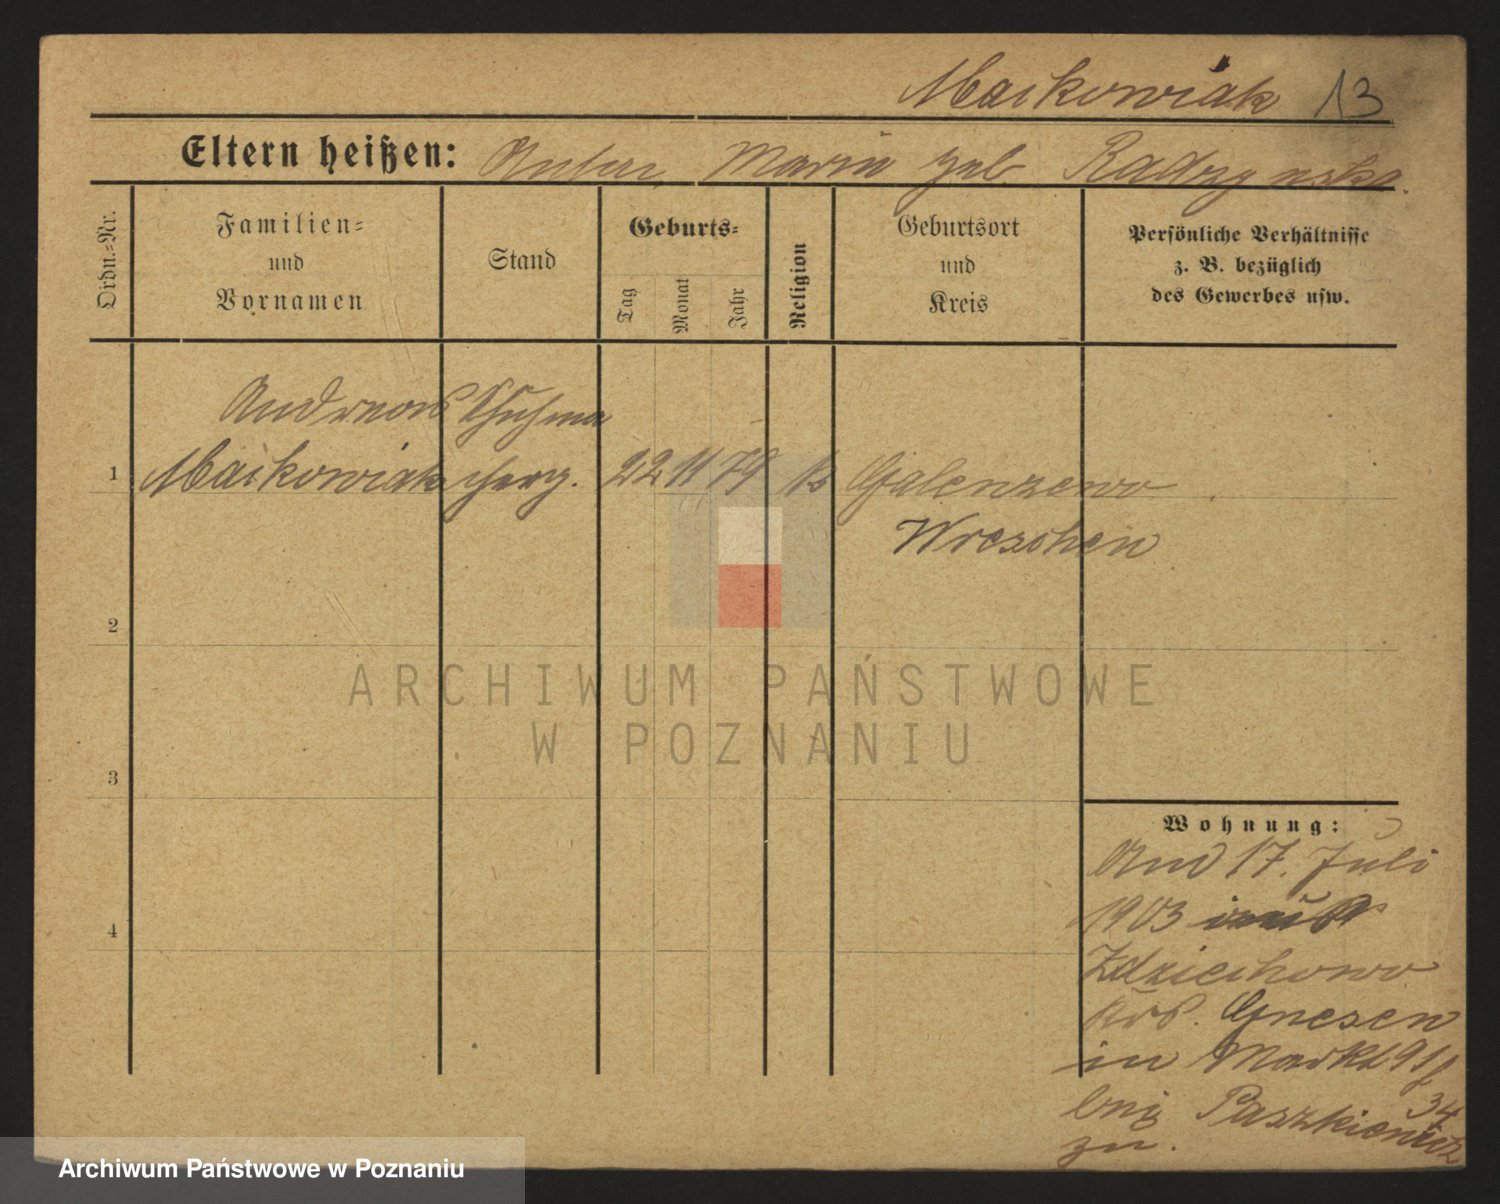 Maikowiak 13
Eltern heißen: Anton, Marie geb. Radzynska.
Ordn.-Nr.
Familien-
und
Vornamen
Stand
Geburts-
Tag
Monat
Jahr
Religion
Geburtsort
und
Kreis
Persönliche Verhältnisse
z. B. bezüglich
des Gewerbes usw.
Andreas Schuhma
1 Maikowiak cherg. 22 11 79 k Galenzewo
Wreschen
2
3
4
Wohnung:
Am 17. Juli
1903 aus
Zdziechowo
Krs. Gnesen
in Markt
34
bei Paszkiewicz
zu.
ARCHIWUM PAŃSTWOWE
W POZNANIU
Archiwum Państwowe w Poznaniu